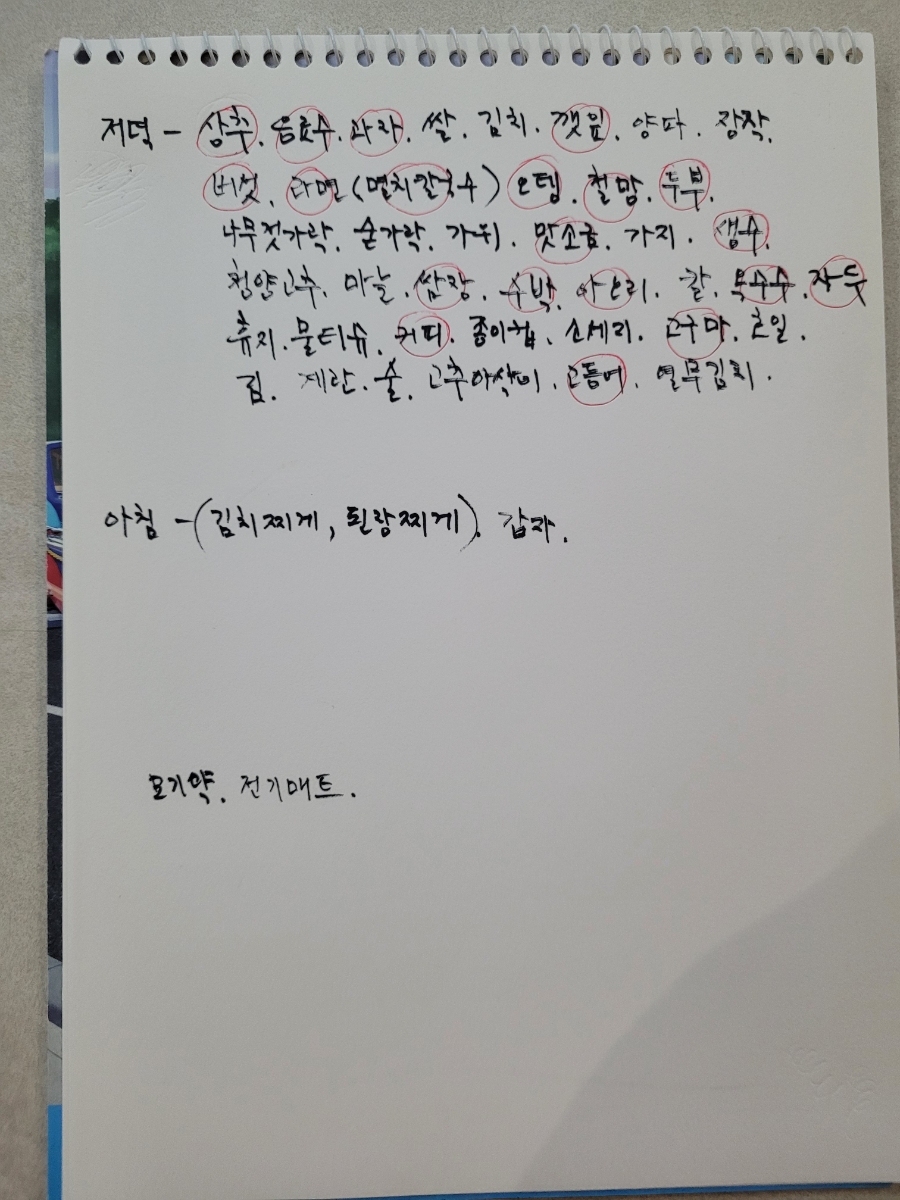 저녁 - 상추. 음료수. 과자. 쌀. 김치. 깻잎. 양파. 장작.
버섯. 라면 (멸치칼국수) 오뎅. 철망. 두부.
나무젓가락. 숟가락. 가위. 맛소금. 가지. 생수.
청양고추. 마늘. 쌈장. 수박. 아오리. 칼. 옥수수. 자두
휴지. 물티슈. 커피. 종이컵. 소세지. 고구마. 호일.
김. 계란. 술. 고추아삭이. 고등어. 열무김치.
아침 - (김치찌게, 된장찌게). 감자.
모기약. 전기매트.